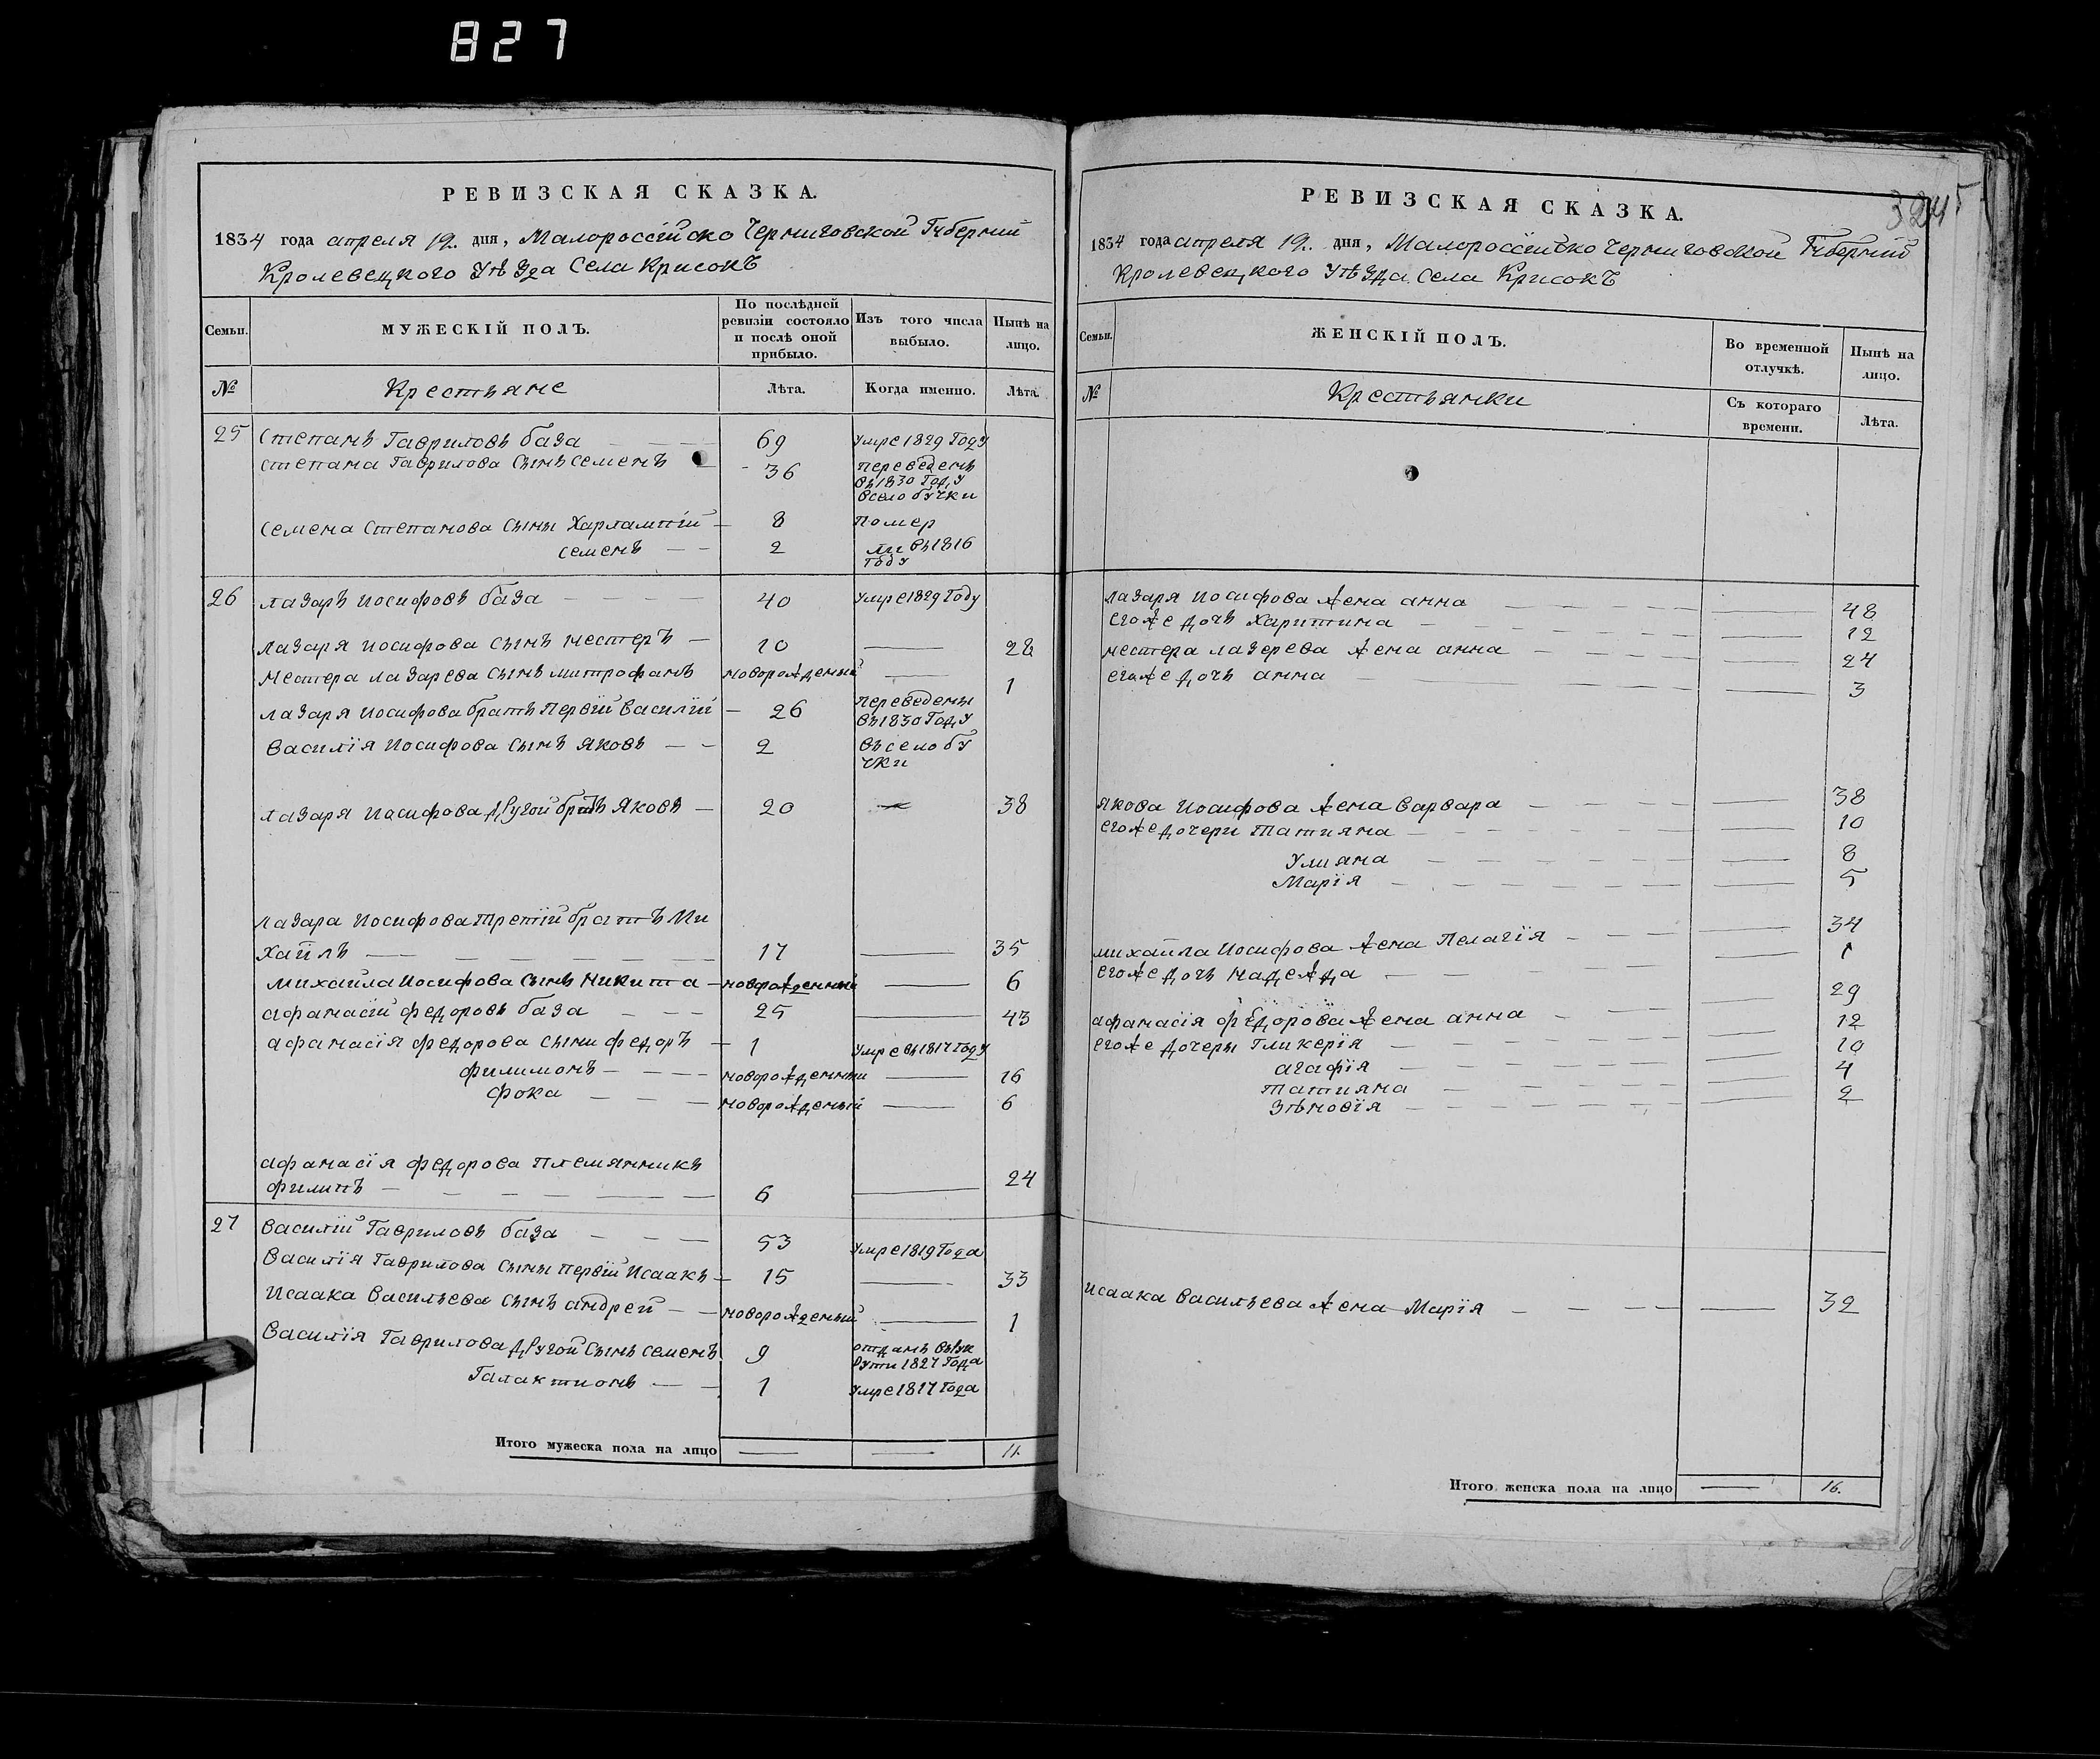 827
РЕВИЗСКАЯ СКАЗКА.
1834 года апреля 19. дня, Малороссійско Черниговской Губерніи
Кролевецкого Уѣзда Села Крисокъ
Семьи.
МУЖЕСКІЙ ПОЛЪ.
По послѣдней ревизіи состояло и послѣ оной прибыло.
Изъ того числа выбыло.
Нынѣ на лицо.
№ Крестьяне Лѣта. Когда именно. Лѣта.
25 Степанъ Гавриловъ база 69 умре 1829 Году
степана Гаврилова Сынъ семенъ 36 переведенъ
въ 1830 Году
всело бучки
семена Степанова Сыны Харлампій 8 помер
семенъ 2 ли въ 1816
Году
26 лазаръ иосифовъ база 40 умре 1829 Году
лазаря иосифова сынъ нестеръ 10 28
Нестера лазарева сынъ митрофанъ новорожденый 1
лазаря иосифова братъ Первій василій 26 переведены
въ 1830 Году
василія иосифова сынъ яковъ 2 въ село бу
чки
лазаря иосифова другой братъ Яковъ 20 38
лазара иосифова третій братъ Ми
хаилъ 17 35
михаила иосифова Сынъ Никита новорожденный 6
афанасій федоровъ база 25 43
афанасія федорова сыни федоръ 1 умре въ 1817 Году
филимонъ новорожденный 16
фока новорожденый 6
афанасія федорова племянникъ
филипъ 6 24
27 василій Гавриловъ база 53 умре 1819 Года
василія Гаврилова сыны первій Исаакъ 15 33
Исаака Васильева сынъ андрей новорожденый 1
василія Гаврилова другой Сынъ семенъ 9 отданъ върек
рути 1827 Года
Галактионъ 1 умре 1817 Года
Итого мужеска пола на лицо 11.
3245
РЕВИЗСКАЯ СКАЗКА.
1834 года апреля 19. дня, Малороссійско Черниговской Губерніи
Кролевецкого Уѣзда Села Крисокъ
Семьи.
ЖЕНСКІЙ ПОЛЪ.
Во временной отлучкѣ.
Нынѣ на лицо.
№ Крестьянки Съ котораго времени. Лѣта.
лазаря иосифова жена анна 48
егоже дочъ Харитина 12
нестера лазерева жена анна 24
егоже дочъ анна 3
якова иосифова жена варвара 38
егоже дочери татияна 10
Улияна 8
Марія 5
михаила иосифова жена Пелагія 34
егоже дочъ надежда 1
афанасія федорова жена анна 29
егоже дочеры Гликерія 12
агафія 10
татияна 4
Зѣновія 2
исаака васильева жена Марія 32
Итого женска пола на лицо 16.